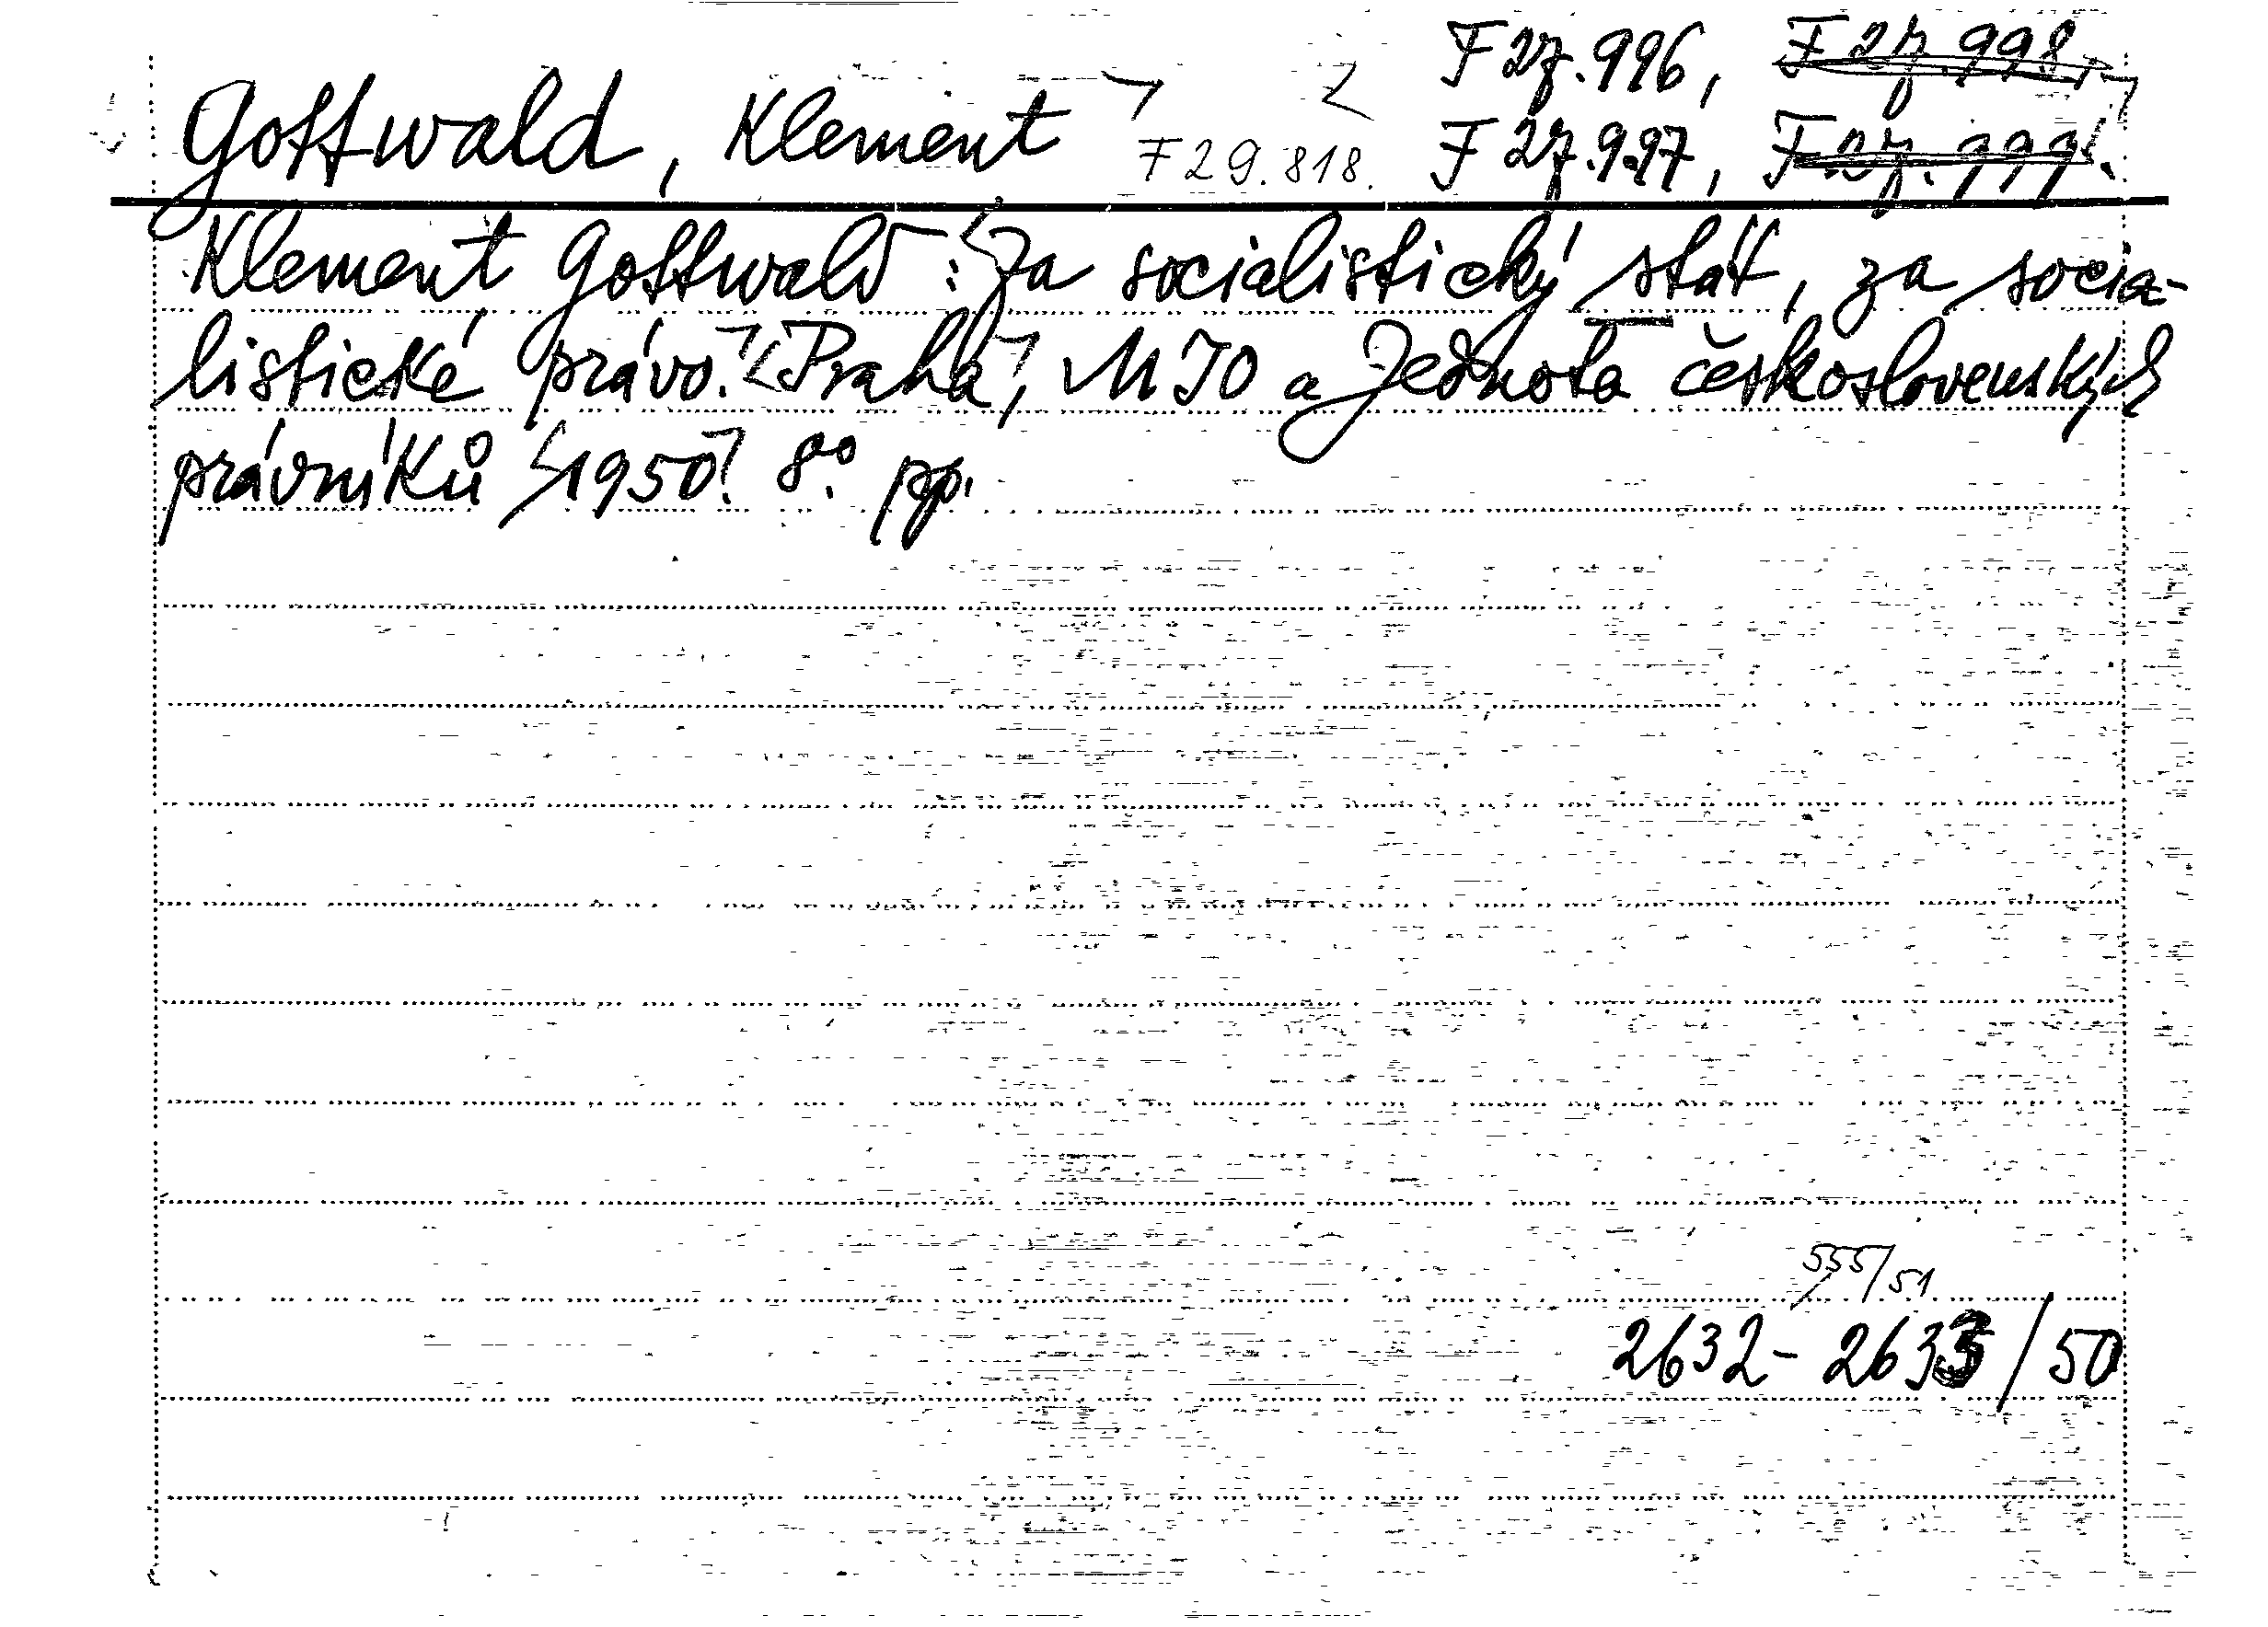 F 27.996, F 27.998,
Gottwald, Klement F 29.818. F 27.997, F 27.999.
Klement Gottwald: Za socialistický stát, za socia-
listické právo. Praha, MIO a Jednota československých
právníků 1950. 8°. pp.
555/51
2632 - 2633/50